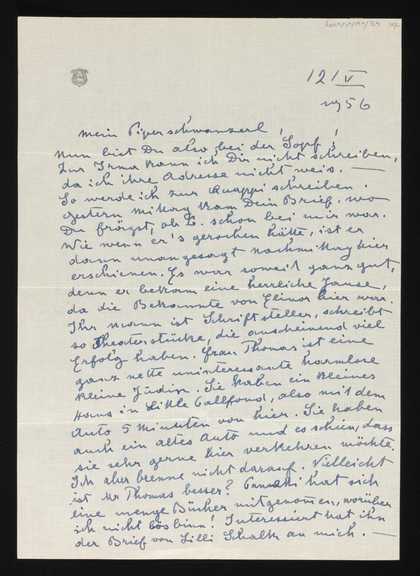 12/V
1956
Mein Piperschwanzerl!
Nun bist Du also bei der Sopf!
Zur Irma kann ich Dir nicht schreiben,
da ich ihre Adresse nicht weis. —
So werde ich zur Quappi schreiben.
Gestern Mittag kam Dein Brief, wo
Du frägst, ob L. schon bei mir war.
Wie wenn er's gerochen hätte, ist er
dann unangesagt nachmittag hier
erschienen. Es war soweit ganz gut,
denn er bekam eine herrliche Jause,
da die Bekannte von Elinor hier war.
Ihr Mann ist Schriftsteller, schreibt
so Theaterstücke, die anscheinend viel
Erfolg haben. Frau Thomas ist eine
ganz nette uninteressante harmlose
kleine Jüdin. Sie haben ein kleines
Haus in Little, also mit dem
Auto 5 Minuten von hier. Sie haben
auch ein altes Auto und es schien, dass
sie sehr gerne hier verkehren möchte.
Ich aber brenne nicht darauf. Vielleicht
ist Mr Thomas besser? hat sich
eine menge Bücher mitgenommen, worüber
ich nicht bös binn! Interessiert hat ihn
der Brief von Lilli Schalk an mich. —